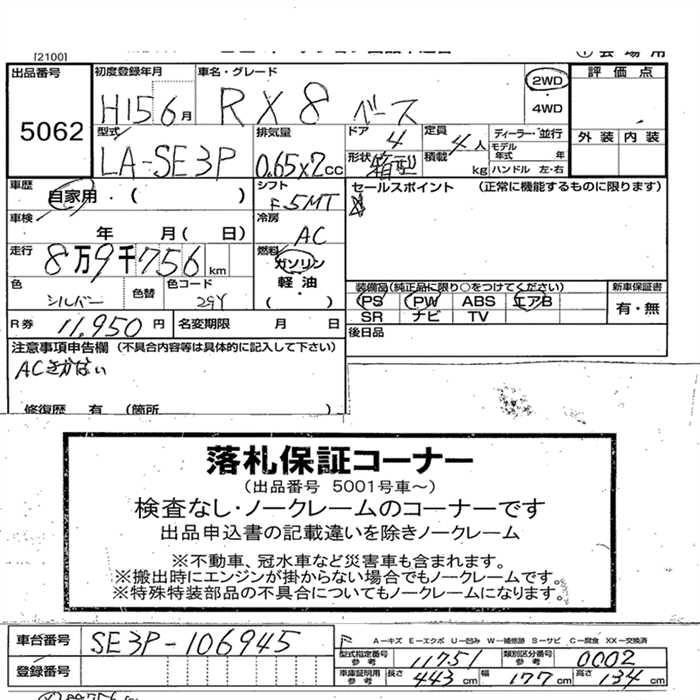 [2100]
出品番号
5062
初度登録年月
H15 6月
車名・グレード
RX8 ベース
2WD
・4WD
評価点
外装 内装
型式
LA-SE3P
排気量
0.65×2cc
ドア
4
形状
箱型
定員
4人
積載
kg
ディーラー・並行
モデル年式 年
ハンドル 左・右
車歴
自家用・( )
シフト
F5MT
セールスポイント (正常に機能するものに限ります)
車検
年 月( 日)
冷房
AC
走行
8万9千756km
燃料
ガソリン
軽油・
( )
色
シルバー
色替
色コード
29Y
装備品(純正品に限り○をつけてください)
PS PW ABS エアB
SR ナビ TV
新車保証書
有・無
R券 11,950円
名変期限 月 日
後日品
注意事項申告欄 (不具合内容等は具体的に記入して下さい)
ACきかない
修復歴 有 (箇所 )
落札保証コーナー
(出品番号 5001号車～)
検査なし・ノークレームのコーナーです
出品申込書の記載違いを除きノークレーム
※不動車、冠水車など災害車も含まれます。
※搬出時にエンジンが掛からない場合でもノークレームです。
※特殊特装部品の不具合についてもノークレームになります。
車台番号
SE3P-106945
A－キズ E－エクボ U－凹み W－補修跡 S－サビ C－腐食 XX－交換済
型式指定番号 参考
11751
類別区分番号 参考
0002
登録番号
車庫証明用 参考
長さ 443cm 幅 177cm 高さ 134cm